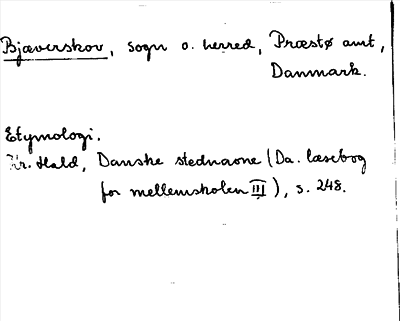 Bjæverskov, sogn o. herred, Præstø amt,
Danmark.
Etymologi.
Kr. Hald, Danske stednavne (Da. læsebog
for mellemskolen III), s. 248.